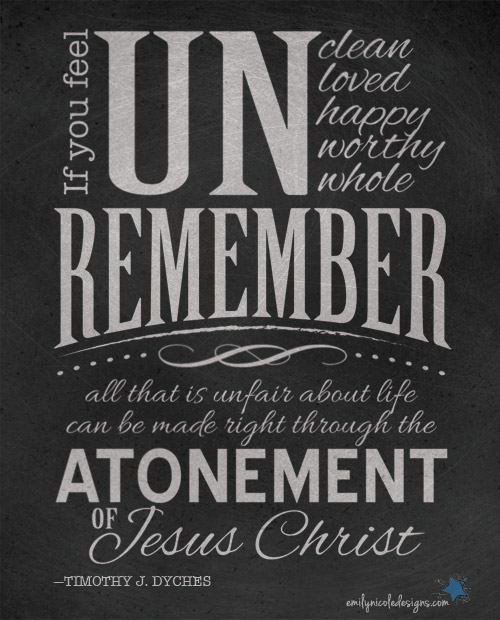 If you feel
UN
clean
loved
happy
worthy
whole
REMEMBER
all that is unfair about life
can be made right through the
ATONEMENT
OF Jesus Christ
—TIMOTHY J. DYCHES
emilynicoledesigns.com